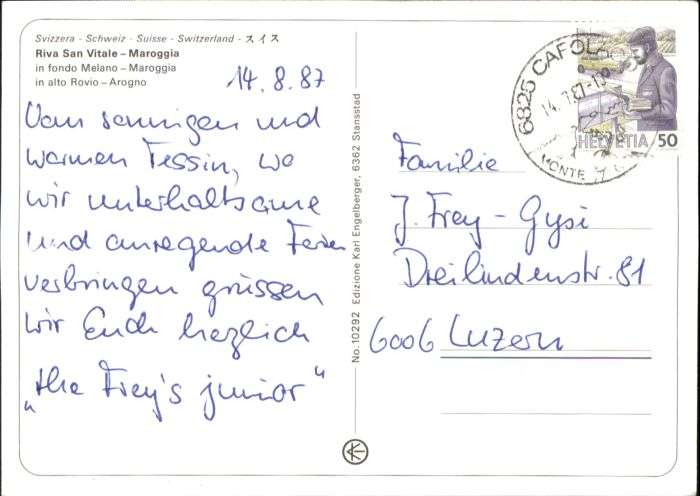 Svizzera - Schweiz - Suisse - Switzerland - スイス
Riva San Vitale – Maroggia
in fondo Melano – Maroggia
in alto Rovio – Arogno
14.8.87
Vom sonnigen und
warmen Tessin, wo
wir unterhaltsame
und anregende Ferien
verbringen grüssen
wir Euch herzlich
„the Frey's junior“
No. 10292 Edizione Karl Engelberger, 6362 Stansstad
6825 CAPOLAGO
MONTE
HELVETIA 50
Familie
J. Frey - Gysi
Dreilindenstr. 81
6006 Luzern